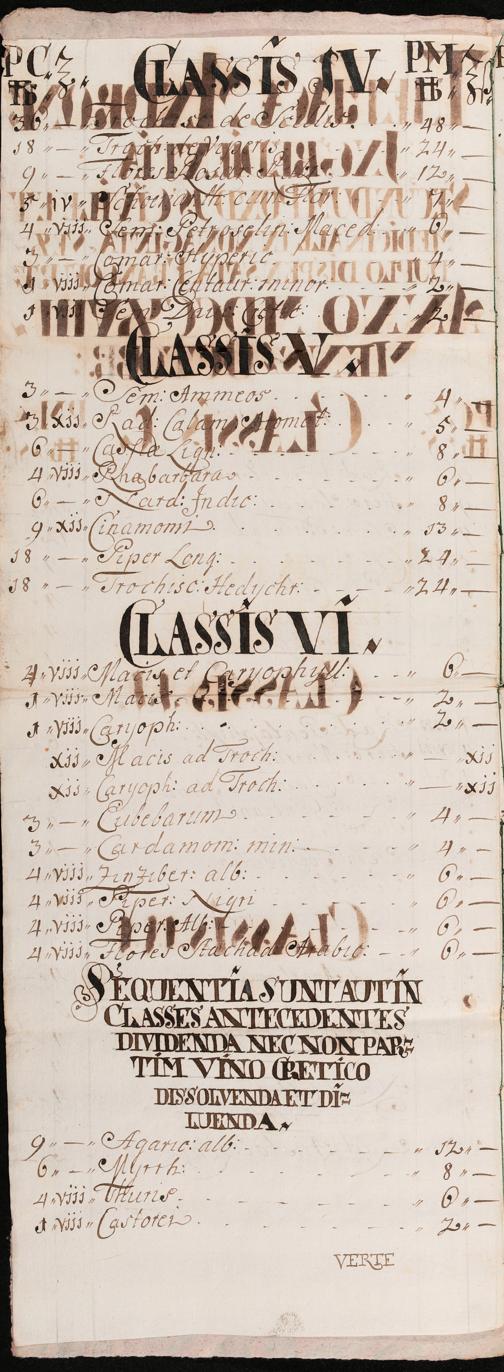 PC ℥ CLASSIS IV. PM ℥
℔ ℔ ℥
36 „ — „ Trochisc: de Scillis. „ 48 „ —
18 „ — „ Troch: de Viperis „ 24 „ —
9 „ — „ Flores Rosar: Rubr: „ 12 „ —
5 „ iv „ Scordia cum Flor: „ 7 „ —
4 „ viii „ Sem: Petroselin: Maced: „ 6 „ —
3 „ — „ Comar: Hyperic „ 4 „ —
1 „ viii „ Comar: Centaur: minor. „ 2 „ —
1 „ viii „ Sem: Dauc: Cretic „ 2 „ —
CLASSIS V.
3 „ — „ Sem: Ammeos „ 4 „ —
3 „ xii „ Rad: Calam: Aromat: „ 5 „ —
6 „ — „ Cassia Lign: „ 8 „ —
4 „ viii „ Rhabarbara „ 6 „ —
6 „ — „ Nard: Indic: „ 8 „ —
9 „ xii „ Cinamomi „ 13 „ —
18 „ — „ Piper Long: „ 24 „ —
18 „ — „ Trochisc: Hedychr: „ 24 „ —
CLASSIS VI.
4 „ viii „ Macis et Caryophyll: „ 6 „ —
1 „ viii „ Macis „ 2 „ —
1 „ viii „ Caryoph: „ 2 „ —
xii „ Macis ad Troch: „ — „ xii
xii „ Caryoph: ad Troch: „ — „ xii
3 „ — „ Cubebarum „ 4 „ —
3 „ — „ Cardamom: min: „ 4 „ —
4 „ viii „ Zinziber: alb: „ 6 „ —
4 „ viii „ Piper: Nigri „ 6 „ —
4 „ viii „ Piper: Alb: „ 6 „ —
4 „ viii „ Flores Stachad: Arabic: „ 6 „ —
SEQUENTIA SUNT AUT IN
CLASSES ANTECEDENTES
DIVIDENDA NEC NON PAR=
TIM VINO CRETICO
DISSOLVENDA ET DI=
LUENDA.
9 „ — „ Agaric: alb: „ 12 „ —
6 „ — „ Myrrh: „ 8 „ —
4 „ viii „ Thuris „ 6 „ —
1 „ viii „ Castorei „ 2 „ —
VERTE